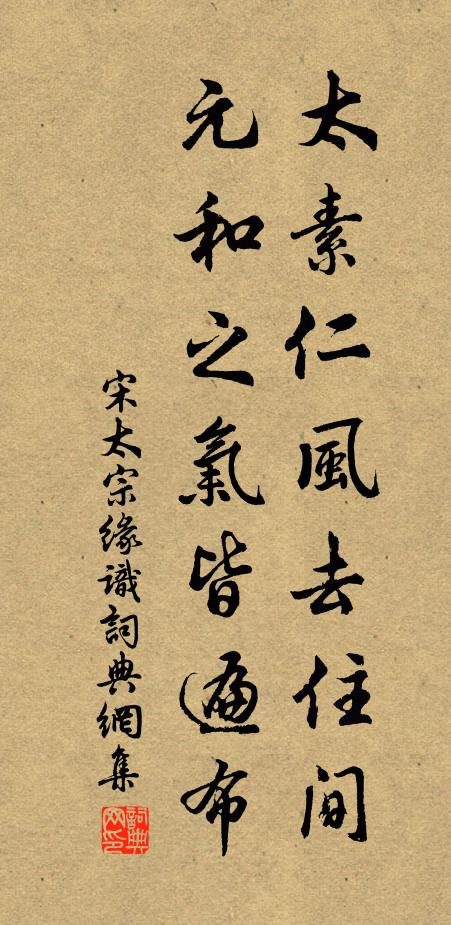 太素仁風去住間
元和之氣皆遍布
宋太宗緣識詞典網集
詞典網印